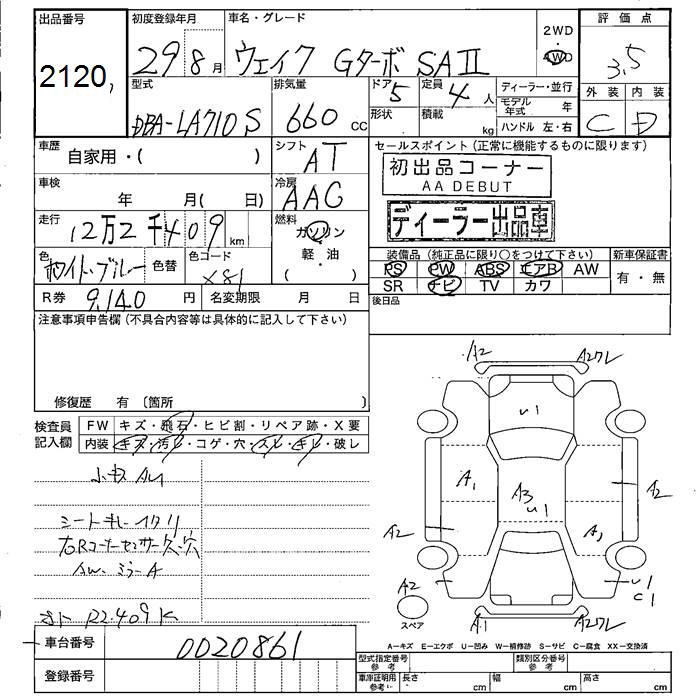 出品番号 初度登録年月 車名・グレード 2WD 評価点
2120, 29年 8月 ウェイク Gターボ SAⅡ ・ AWD 3.5
型式 排気量 ドア 5 定員 4人 ディーラー・並行 外装 内装
DBA-LA710S 660 cc 形状 積載 kg モデル年式 年 C D
ハンドル 左・右
車歴 自家用・( ) シフト AT セールスポイント (正常に機能するものに限ります)
初出品コーナー
AA DEBUT
車検 年 月( 日) 冷房 AAC
ディーラー出品車
走行 12万2千409 km 燃料 ガソリン
軽・油
( )
色 ホワイト・ブルー 色替 色コード X81
装備品 (純正品に限り○をつけて下さい) 新車保証書
PS PW ABS エアB AW 有・無
SR ナビ TV カワ
R券 9,140 円 名変期限 月 日 後日品
注意事項申告欄 (不具合内容等は具体的に記入して下さい)
修復歴 有 〔箇所 〕
検査員記入欄 FW キズ・飛石・ヒビ割・リペア跡・X要
内装 キズ・汚レ・コゲ・穴・スレ・キレ・破レ
小キズ AU
シートキレ
右Rコーナーセンサー欠・穴
ミラーA
122.409K
A2 A2ワレ
U1
A1 A3 U1 A2
A2 A1
A2 U1
C1
スペア A1 A2ワレ
A−キズ E−エクボ U−凹み W−補修跡 S−サビ C−腐食 XX−交換済
車台番号 0020861
型式指定番号 参考 類別区分番号 参考
登録番号 車庫証明用 参考 長さ cm 幅 cm 高さ cm